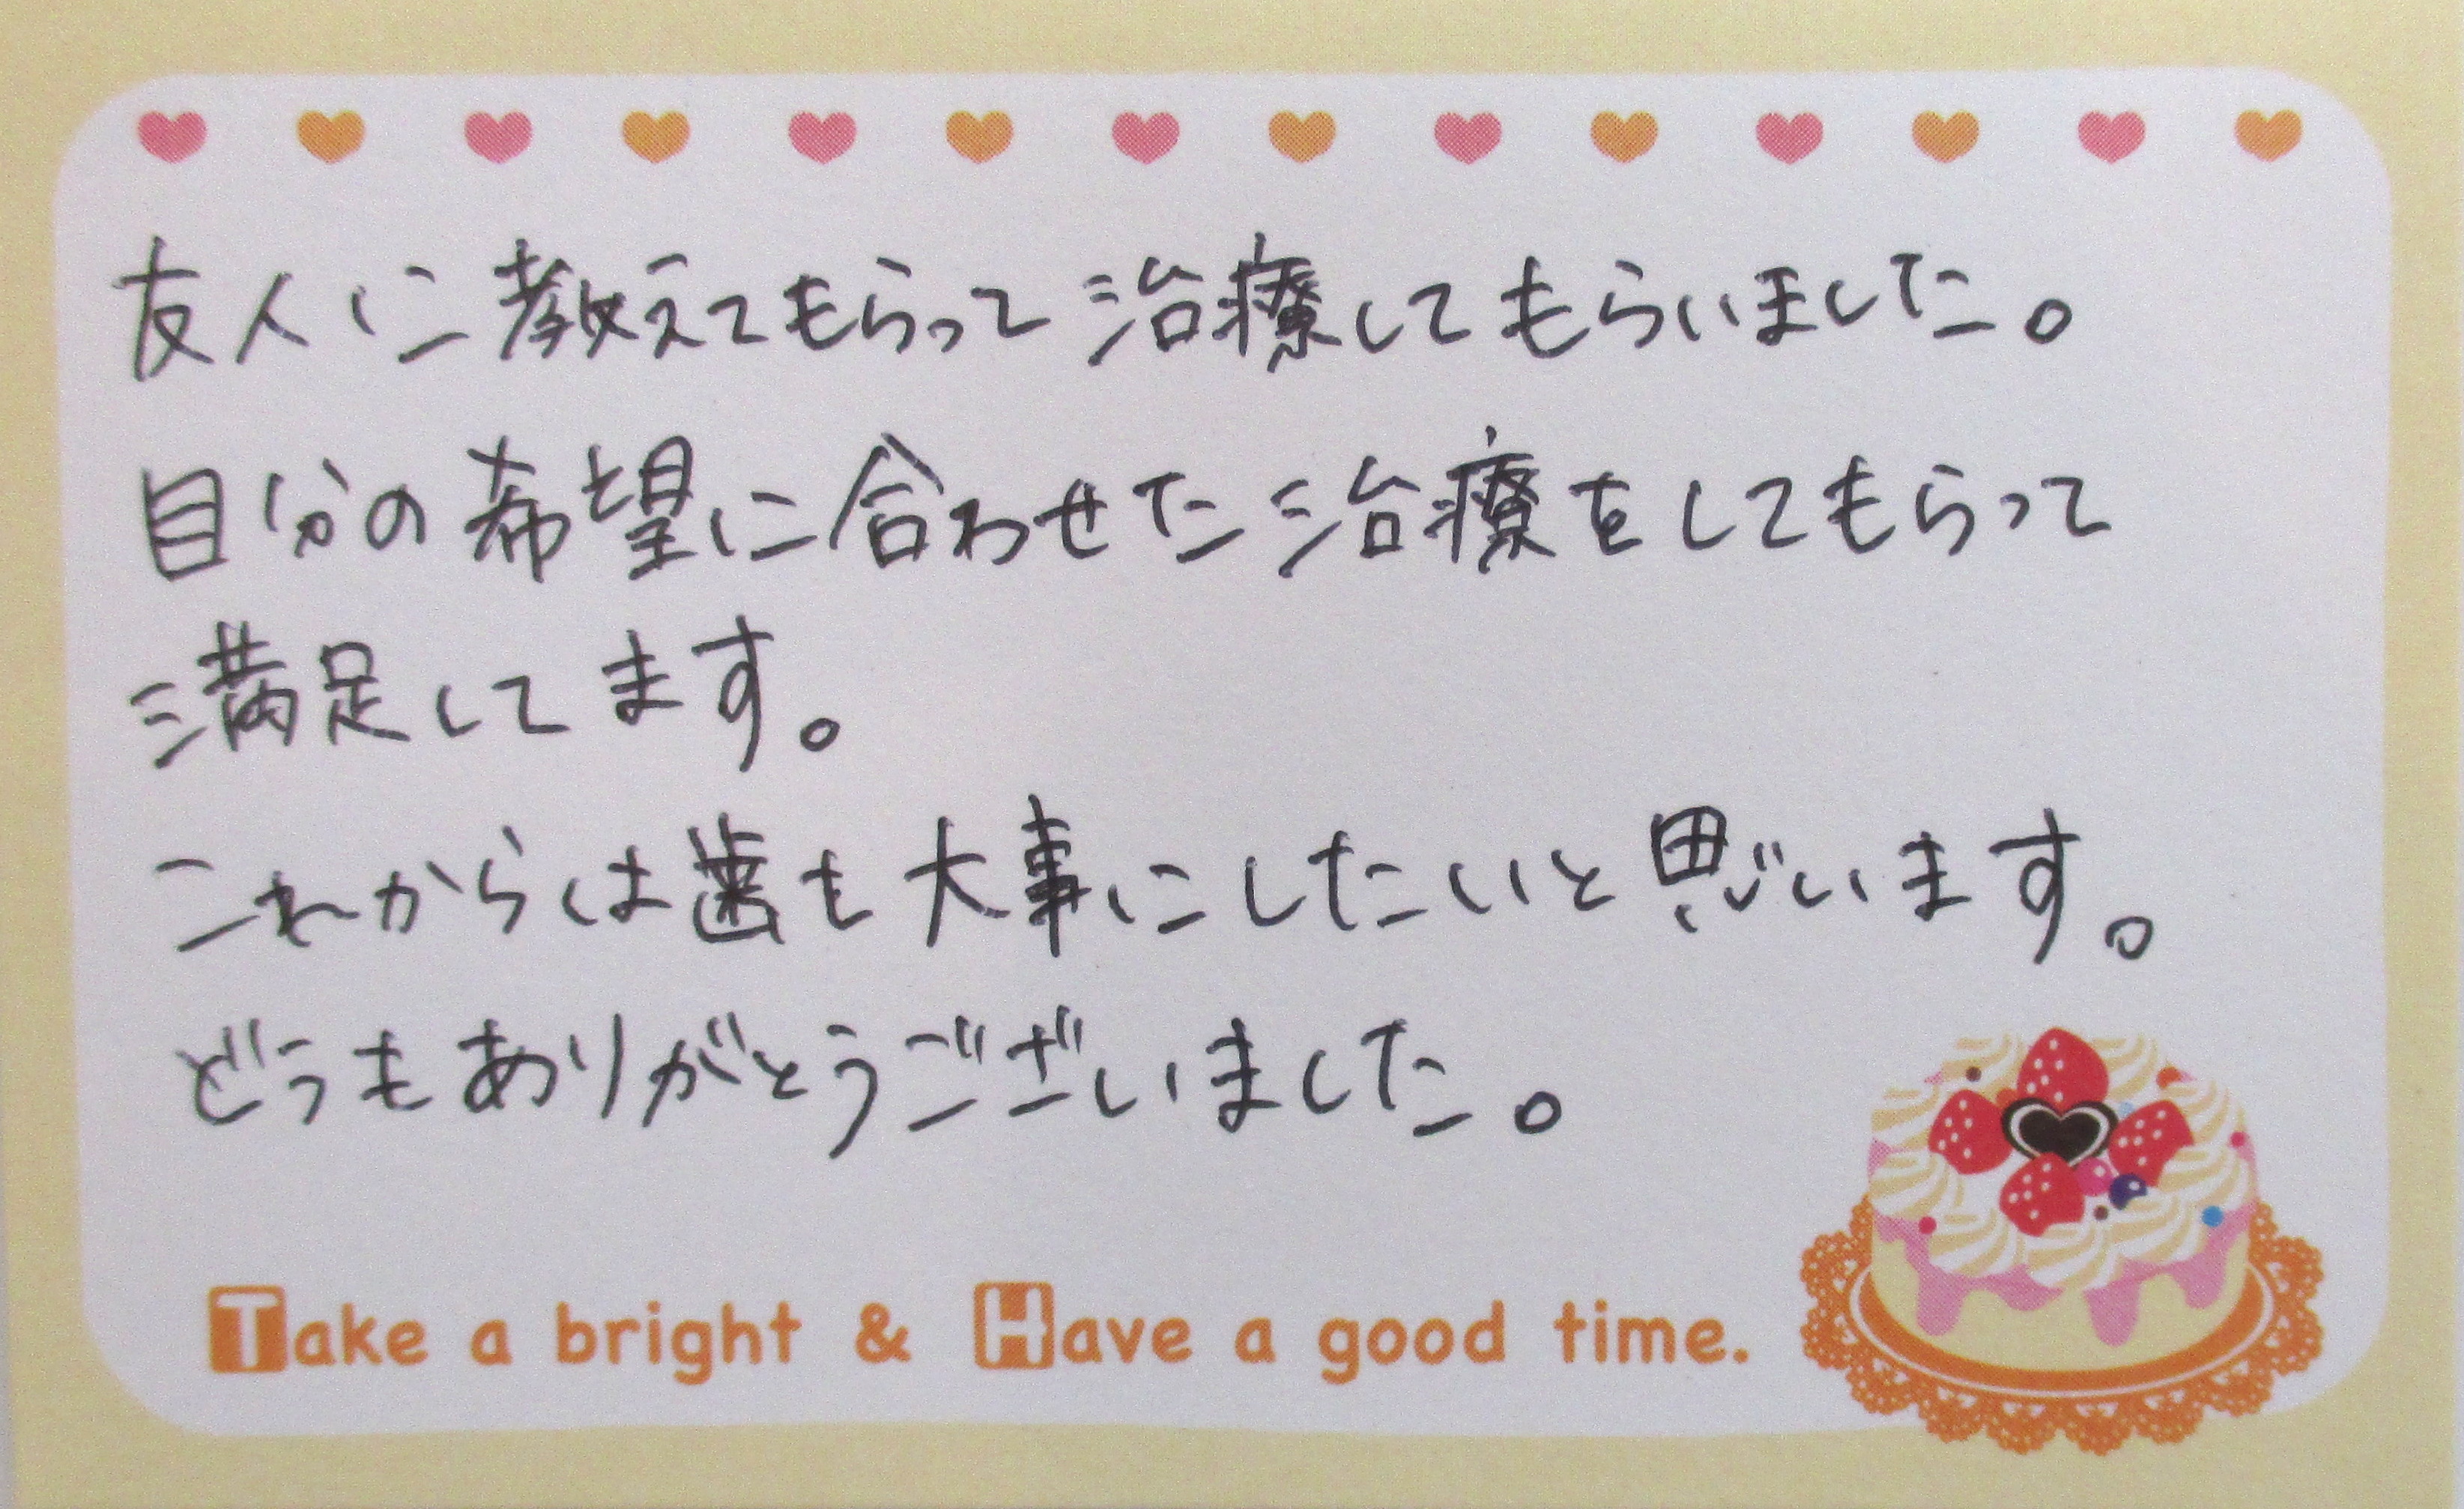 友人に教えてもらって治療してもらいました。
自分の希望に合わせた治療をしてもらって
満足してます。
これからは歯も大事にしたいと思います。
どうもありがとうございました。
Take a bright & Have a good time.